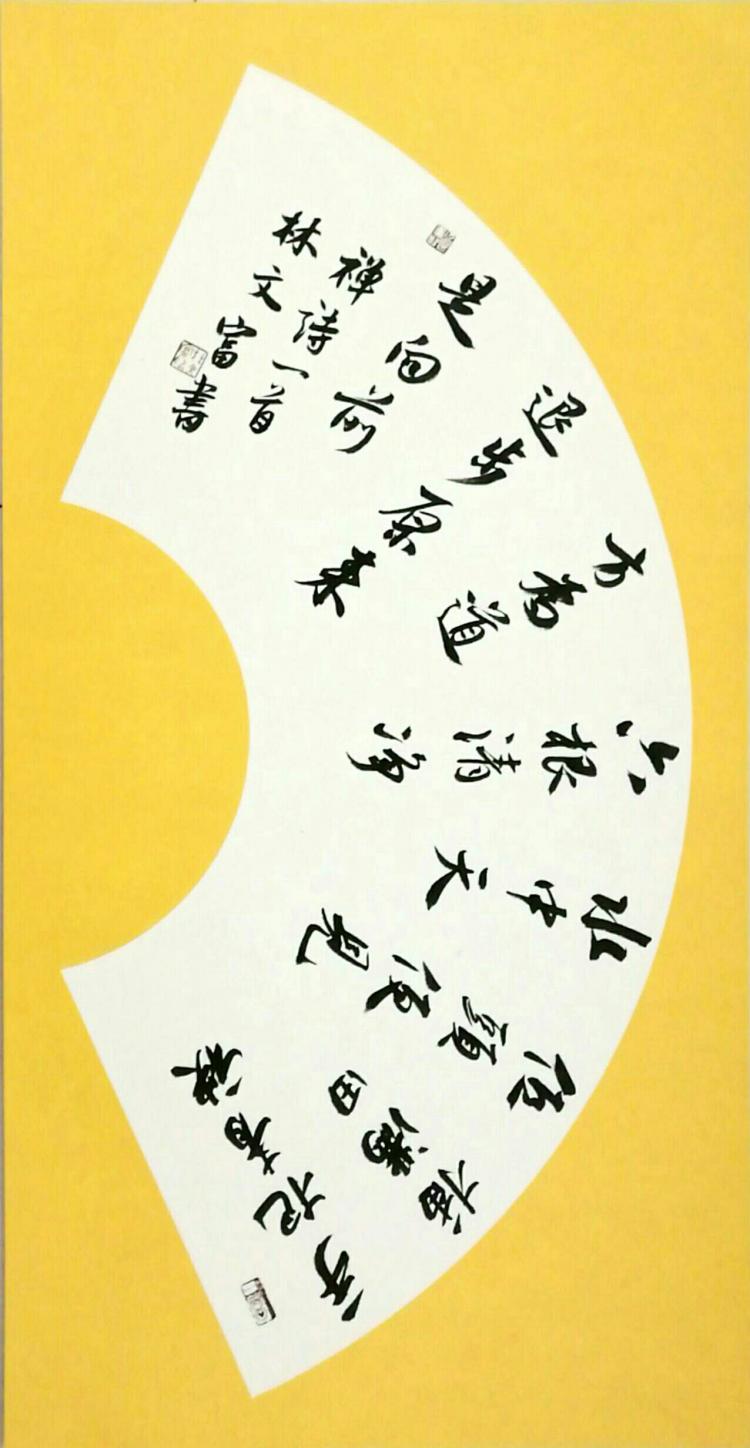 手把青秧
插滿田
低頭便見
水中天
六根清净
方為道
退步原来
是向前
禅诗一首
林文富書